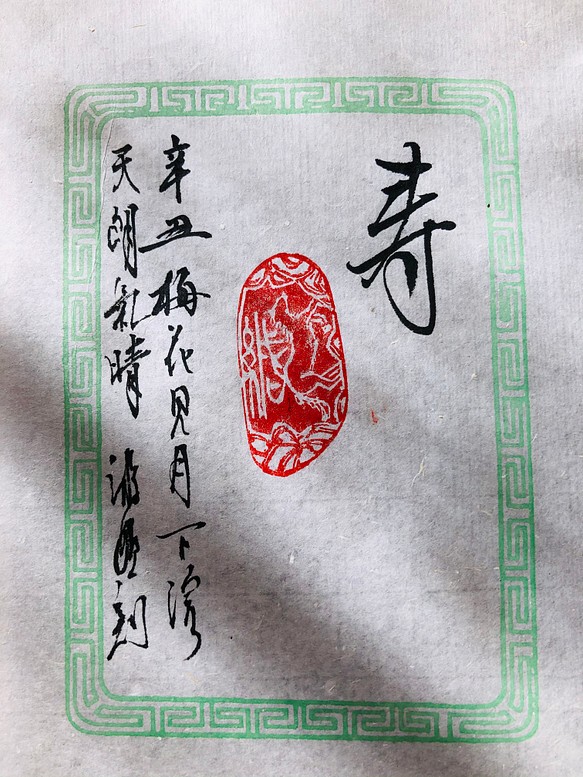 寿
辛丑梅花見月下浣
天朗氣晴 刻